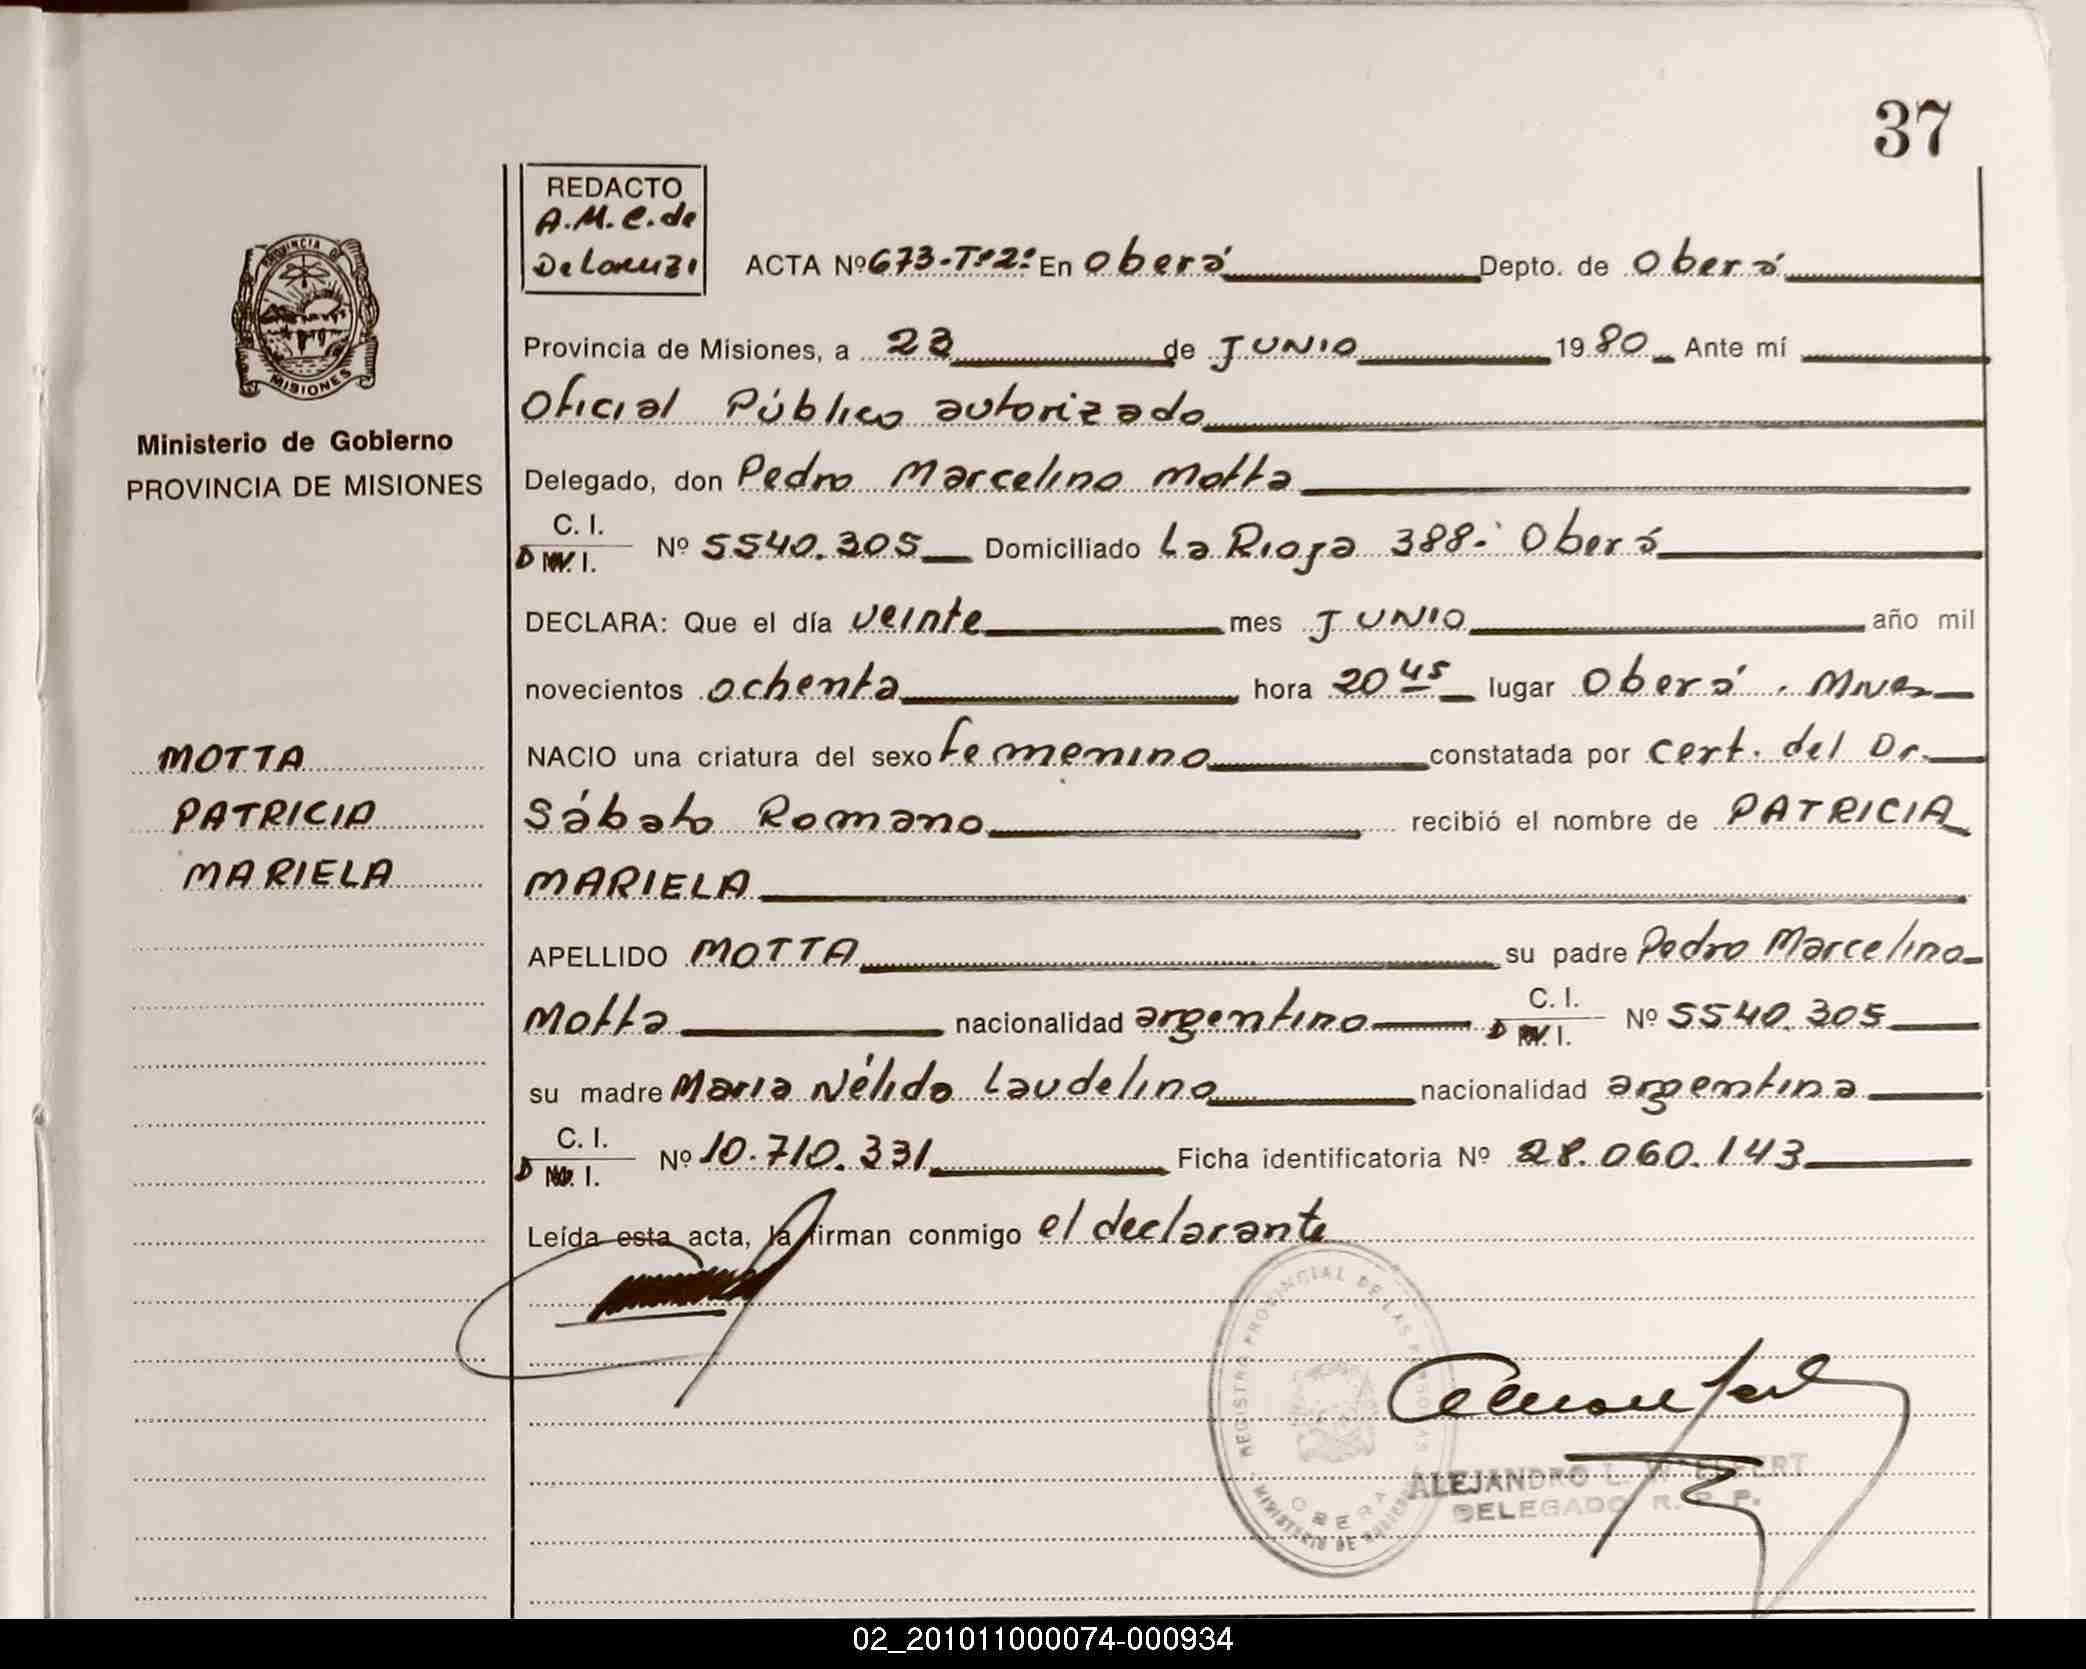 37
REDACTO
A.M.C. de
ACTA Nº 673-Tº2º En Oberá Depto. de Oberá
Provincia de Misiones, a 23 de JUNIO 1980 Ante mí
Oficial Público autorizado
Delegado, don Pedro Marcelino Motta
C. I.
D N. I. Nº 5540.305 Domiciliado La Rioja 388.- Oberá
DECLARA: Que el día veinte mes JUNIO año mil
novecientos ochenta hora 20 45 lugar Oberá. Mnes
NACIO una criatura del sexo femenino constatada por cert. del Dr.
Sábato Romano recibió el nombre de PATRICIA
MARIELA
APELLIDO MOTTA su padre Pedro Marcelino
Motta nacionalidad argentino C. I.
D N. I. Nº 5540.305
su madre María Nélida Laudelina nacionalidad argentina
C. I.
D N. I. Nº 10.710.331 Ficha identificatoria Nº 28.060.143
Leída esta acta, la firman conmigo el declarante
PROVINCIA DE
MISIONES
Ministerio de Gobierno
PROVINCIA DE MISIONES
MOTTA
PATRICIA
MARIELA
REGISTRO PROVINCIAL DE LAS PERSONAS
MINISTERIO DE GOBIERNO
OBERA
ALEJANDRO L.
DELEGADO R. P. P.
02_201011000074-000934